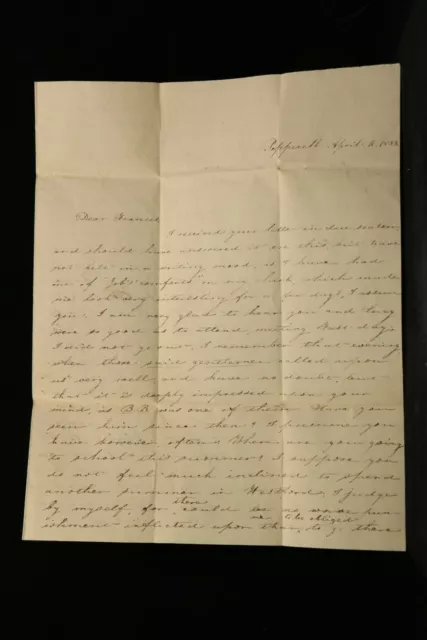 Pepperell April
Dear
I received your letter in due season,
and should have answered it ere this but have
not felt in a writing mood, as I have had
one of Job's comforts on one cheek which made
me look very interesting for a few days, I assure
you. I am very glad to hear you and
were so good as to attend meeting Fast day.
I did not go out. I remember that evening
when those said gentlemen called upon
us very well and have no doubt but
that it is deeply impressed upon your
mind, as B.B. was one of them. Have you
seen him since then? I presume you
have however often. When are you going
to school this summer? I suppose you
do not feel much inclined to spend
another summer in Westford, I judge
by myself, for there could be no worse pun-
ishment inflicted upon me than to be obliged to go there